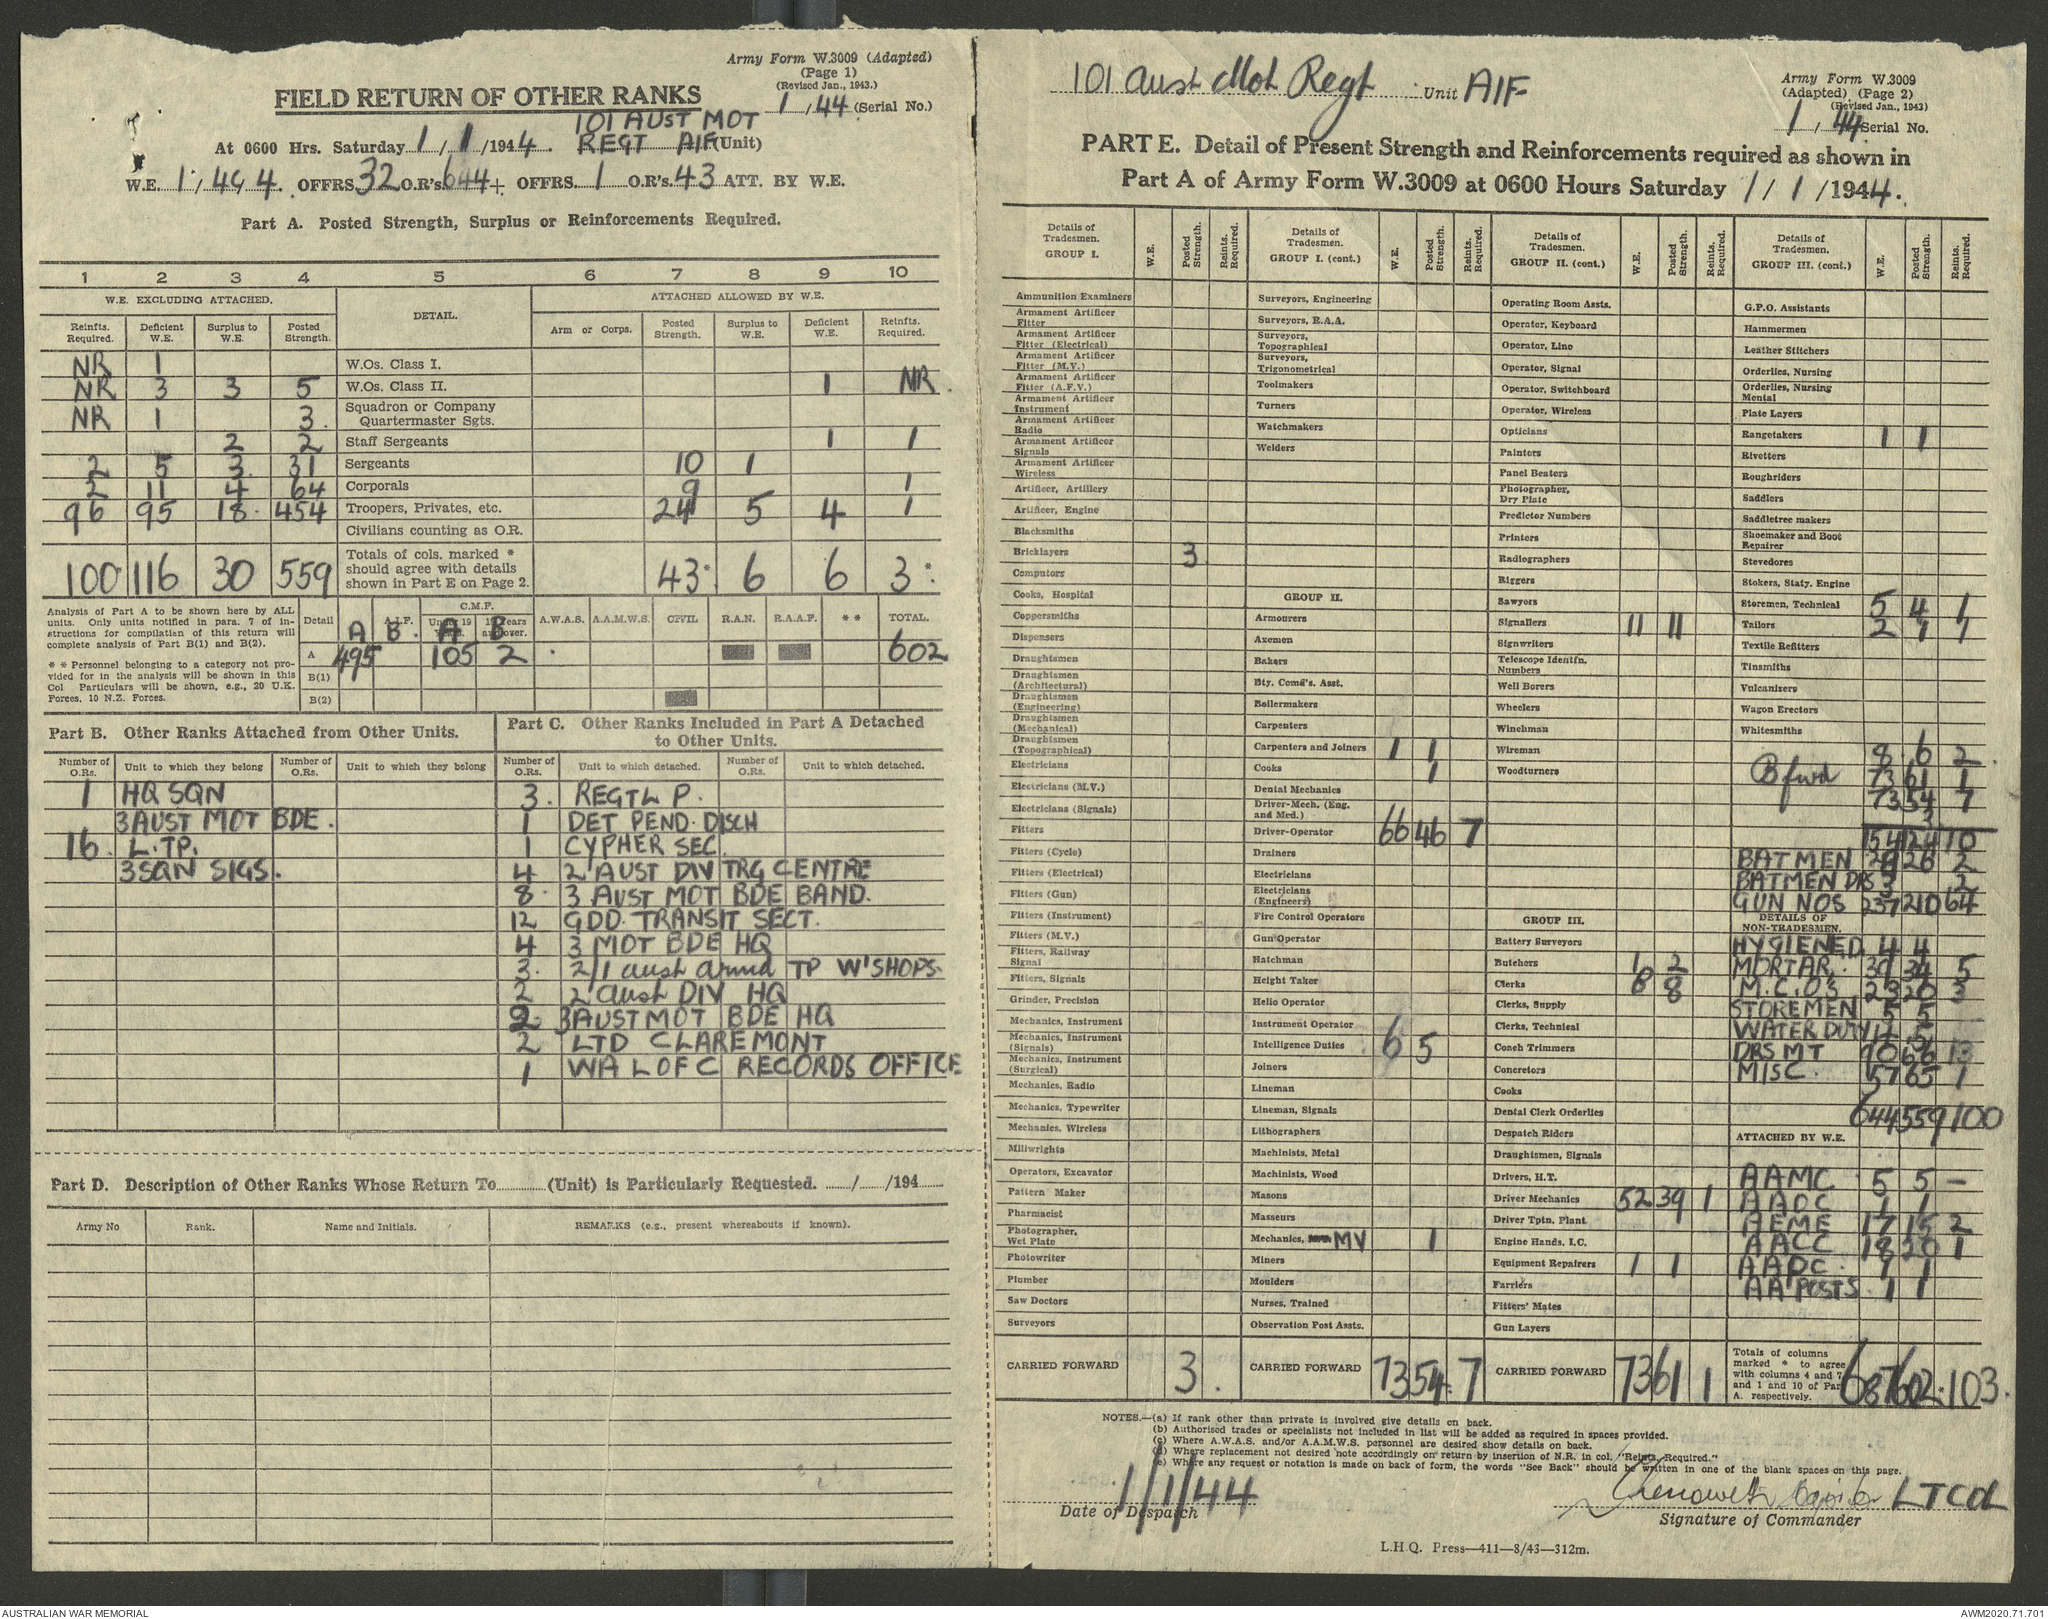 Army Form W.3009 (Adapted)
(Page 1)
(Revised Jan., 1943.)
FIELD RETURN OF OTHER RANKS
1/44 (Serial No.)
101 AUST MOT
At 0600 Hrs. Saturday 1/1/1944. REGT AIF (Unit)
W.E. OFFRS 32 O.R's. 644 + OFFRS. 1 O.R's. 43 ATT. BY W.E.
Part A. Posted Strength, Surplus or Reinforcements Required.
1 2 3 4 5 6 7 8 9 10
W.E. EXCLUDING ATTACHED. DETAIL. ATTACHED ALLOWED BY W.E.
Reinfts. Required. Deficient W.E. Surplus to W.E. Posted Strength. Arm or Corps. Posted Strength. Surplus to W.E. Deficient W.E. Reinfts. Required.
NR 1 W.Os. Class I.
NR 3 3 5 W.Os. Class II. 1 NR.
NR 1 3. Squadron or Company Quartermaster Sgts.
2 2 Staff Sergeants 1 1
2 5 3. 31 Sergeants 10 1
2 11 4 64 Corporals 9 1
96 95 18. 454 Troopers, Privates, etc. 24 5 4 1
Civilians counting as O.R.
100 116 30 559 Totals of cols. marked * should agree with details shown in Part E on Page 2. 43* 6 6 3*
Analysis of Part A to be shown here by ALL units. Only units notified in para. 7 of instructions for compilation of this return will complete analysis of Part B(1) and B(2).
* * Personnel belonging to a category not provided for in the analysis will be shown in this Col Particulars will be shown, e.g., 20 U.K. Forces, 10 N.Z. Forces.
Detail A.I.F. C.M.F. A.W.A.S. A.A.M.W.S. CIVIL R.A.N. R.A.A.F. * * TOTAL.
A B A B
A 495 105 2 602
B(1)
B(2)
Part B. Other Ranks Attached from Other Units.
Number of O.Rs. Unit to which they belong Number of O.Rs. Unit to which they belong
1 HQ SQN
3 AUST MOT BDE.
16. L.TP.
3 SQN SIGS.
Part C. Other Ranks Included in Part A Detached to Other Units.
Number of O.Rs. Unit to which detached. Number of O.Rs. Unit to which detached.
3. REGTL P.
1 DET PEND. DISCH
1 CYPHER SEC.
4 2 AUST DIV TRG CENTRE
8. 3 AUST MOT BDE BAND.
12 GDD. TRANSIT SECT.
4 3 MOT BDE HQ
3. 2/1 aust armd TP W'SHOPS.
2 2 aust DIV HQ
2. 3 AUST MOT BDE HQ
2 LTD CLAREMONT
1 WA L OF C RECORDS OFFICE
Part D. Description of Other Ranks Whose Return To (Unit) is Particularly Requested. / /194
Army No Rank. Name and Initials. REMARKS (e.g., present whereabouts if known).
101 Aust Mot Regt Unit AIF
Army Form W.3009
(Adapted) (Page 2)
(Revised Jan., 1943)
1/44 Serial No.
PART E. Detail of Present Strength and Reinforcements required as shown in
Part A of Army Form W.3009 at 0600 Hours Saturday 1/1/1944.
Details of Tradesmen. GROUP I. W.E. Posted Strength. Reints. Required.
Ammunition Examiners
Armament Artificer Fitter
Armament Artificer Fitter (Electrical)
Armament Artificer Fitter (M.V.)
Armament Artificer Fitter (A.F.V.)
Armament Artificer Instrument
Armament Artificer Radio
Armament Artificer Signals
Armament Artificer Wireless
Artificer, Artillery
Artificer, Engine
Blacksmiths
Bricklayers 3
Computors
Cooks, Hospital
Coppersmiths
Dispensers
Draughtsmen
Draughtsmen (Architectural)
Draughtsmen (Engineering)
Draughtsmen (Mechanical)
Draughtsmen (Topographical)
Electricians
Electricians (M.V.)
Electricians (Signals)
Fitters
Fitters (Cycle)
Fitters (Electrical)
Fitters (Gun)
Fitters (Instrument)
Fitters (M.V.)
Fitters, Railway Signal
Fitters, Signals
Grinder, Precision
Mechanics, Instrument
Mechanics, Instrument (Signals)
Mechanics, Instrument (Surgical)
Mechanics, Radio
Mechanics, Typewriter
Mechanics, Wireless
Millwrights
Operators, Excavator
Pattern Maker
Pharmacist
Photographer, Wet Plate
Photowriter
Plumber
Saw Doctors
Surveyors
CARRIED FORWARD 3.
Details of Tradesmen. GROUP I. (cont.) W.E. Posted Strength. Reints. Required.
Surveyors, Engineering
Surveyors, R.A.A.
Surveyors, Topographical
Surveyors, Trigonometrical
Toolmakers
Turners
Watchmakers
Welders
GROUP II.
Armourers
Axemen
Bakers
Bty. Comd's. Asst.
Boilermakers
Carpenters
Carpenters and Joiners 1 1
Cooks 1
Dental Mechanics
Driver-Mech. (Eng. and Med.)
Driver-Operator 66 46 7
Drainers
Electricians
Electricians (Engineers)
Fire Control Operators
Gun Operator
Hatchman
Height Taker
Helio Operator
Instrument Operator
Intelligence Duties 6 5
Joiners
Lineman
Lineman, Signals
Lithographers
Machinists, Metal
Machinists, Wood
Masons
Masseurs
Mechanics, MV 1
Miners
Moulders
Nurses, Trained
Observation Post Assts.
CARRIED FORWARD 73 54. 7
Details of Tradesmen. GROUP II. (cont.) W.E. Posted Strength. Reints. Required.
Operating Room Assts.
Operator, Keyboard
Operator, Line
Operator, Signal
Operator, Switchboard
Operator, Wireless
Opticians
Painters
Panel Beaters
Photographer, Dry Plate
Predictor Numbers
Printers
Radiographers
Riggers
Sawyers
Signallers 11 11
Signwriters
Telescope Identfn. Numbers
Well Borers
Wheelers
Winchman
Wireman
Woodturners
GROUP III.
Battery Surveyors
Butchers 1 2
Clerks 8 8
Clerks, Supply
Clerks, Technical
Coach Trimmers
Concretors
Cooks
Dental Clerk Orderlies
Despatch Riders
Draughtsmen, Signals
Drivers, H.T.
Driver Mechanics 52 39 1
Driver Tptn. Plant
Engine Hands, I.C.
Equipment Repairers 1 1
Farriers
Fitters' Mates
Gun Layers
CARRIED FORWARD 73 61 1
Details of Tradesmen. GROUP III. (cont.) W.E. Posted Strength. Reints. Required.
G.P.O. Assistants
Hammermen
Leather Stitchers
Orderlies, Nursing
Orderlies, Nursing Mental
Plate Layers
Rangetakers 1 1
Rivetters
Roughriders
Saddlers
Saddletree makers
Shoemaker and Boot Repairer
Stevedores
Stokers, Staty. Engine
Storemen, Technical 5 4 1
Tailors 2 1 1
Textile Refitters
Tinsmiths
Vulcanizers
Wagon Erectors
Whitesmiths
8 6 2
B fwd 73 61 1
73 54 7
3
154 124 10
BATMEN 29 26 2
BATMEN DRS 3 2
GUN NOS 237 210 64
DETAILS OF NON-TRADESMEN.
HYGIENE D. 4 4
MORTAR. 34 5
M.C.O'S 20 3
STOREMEN 5 5
WATER DUTY
DRS MT 90 66 13
MISC. 57 65 1
644 559 100
ATTACHED BY W.E.
AAMC 5 5 -
AAOC 1 1
AEME 17 15 2
AACC 18 20 1
AADC. 1 1
AA POSTS. 1 1
Totals of columns marked * to agree with columns 4 and 7 and 1 and 10 of Part A. respectively. 687 602* 103.
NOTES.—(a) If rank other than private is involved give details on back.
(b) Authorised trades or specialists not included in list will be added as required in spaces provided.
(c) Where A.W.A.S. and/or A.A.M.W.S. personnel are desired show details on back.
(d) Where replacement not desired note accordingly on return by insertion of N.R. in col. "Reints. Required."
(e) Where any request or notation is made on back of form, the words "See Back" should be written in one of the blank spaces on this page.
1/1/44
Date of Despatch
LTCOL
Signature of Commander
L.H.Q. Press—411—8/43—312m.
AUSTRALIAN WAR MEMORIAL
AWM2020.71.701